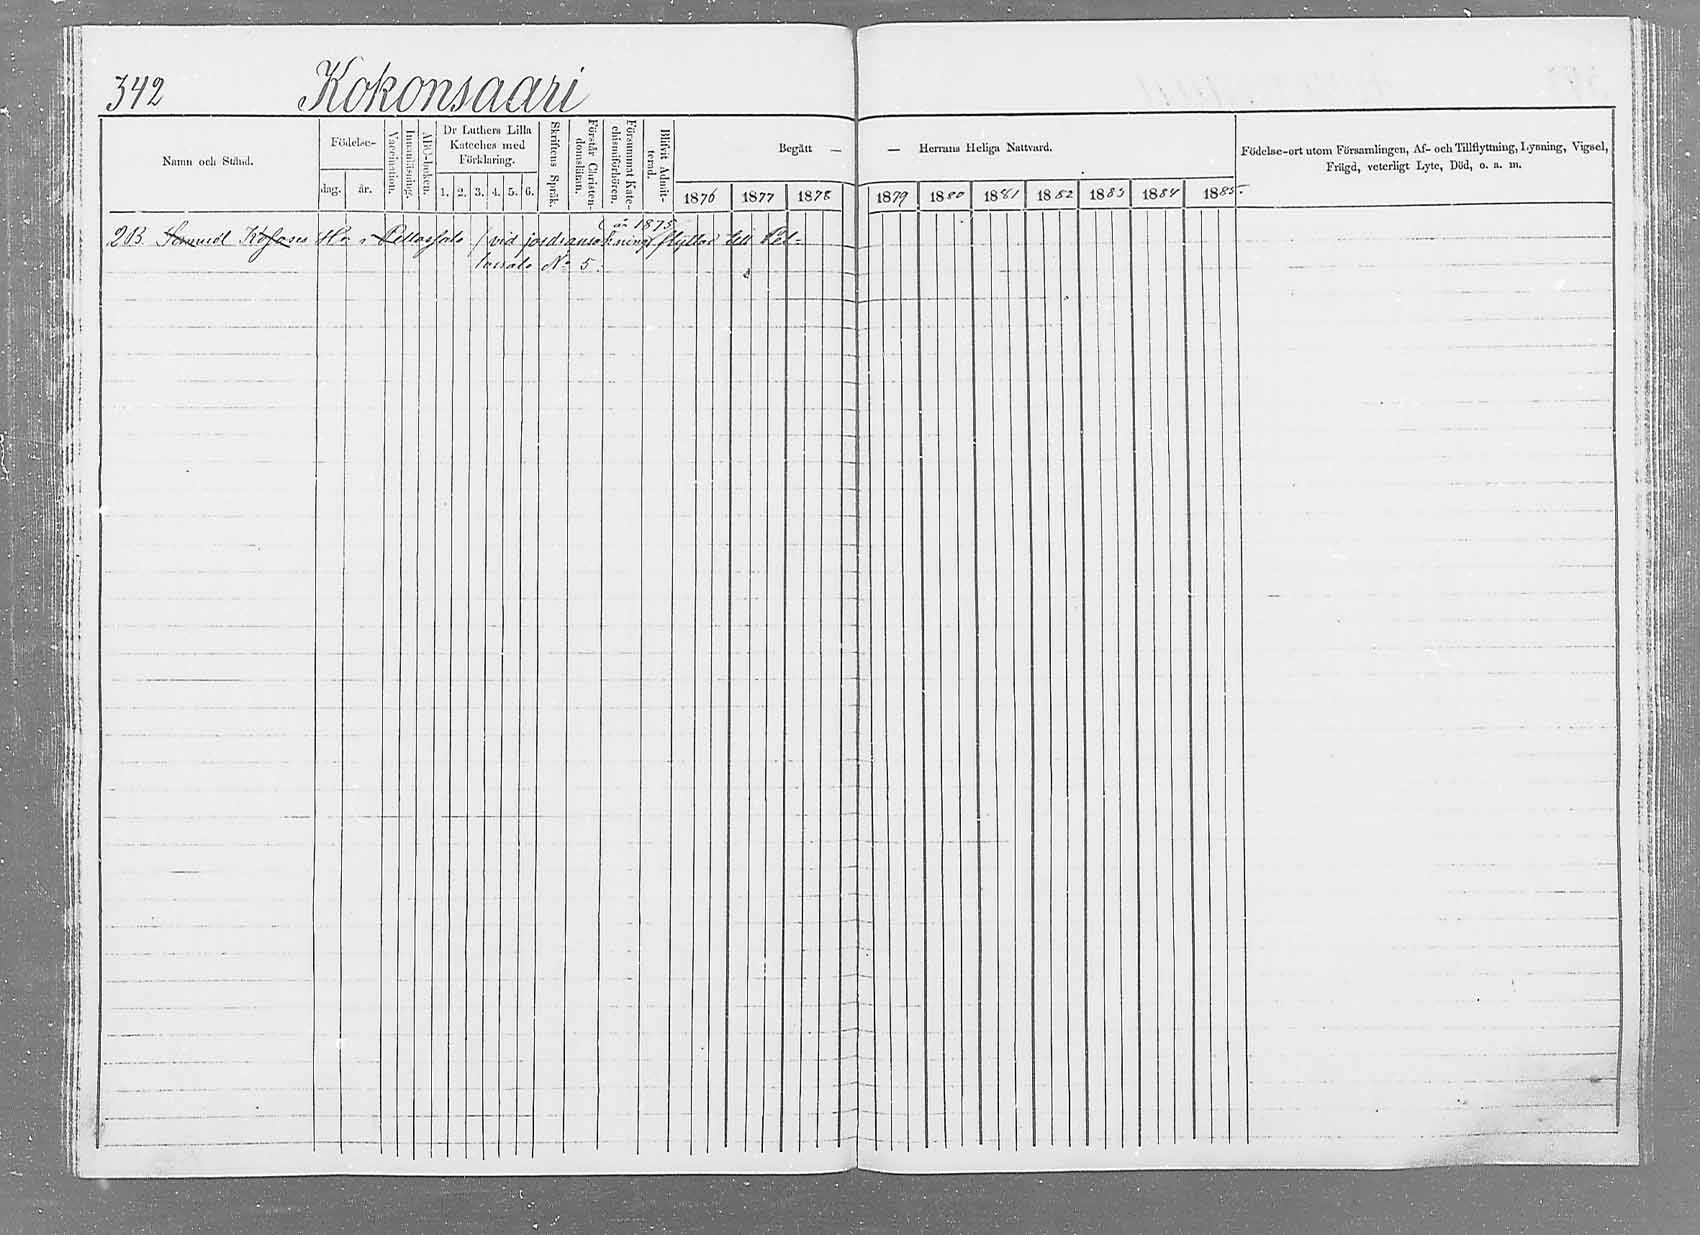 342 Kokonsaari
Namn och Stånd.
Födelse-
dag. år.
Vaccination.
Innanläsning.
ABC-boken.
Dr Luthers Lilla
Kateches med
Förklaring.
1. 2. 3. 4. 5. 6.
Skriftens Språk.
Förstår Christen-
domslüran.
Försummat Kate-
chismiförhören.
Blifvit Admit-
terad.
Begått — — Herrans Heliga Nattvard.
1876 1877 1878 1879 1880 1881 1882 1883 1884 1885
Födelse-ort utom Församlingen, Af- och Tillflyttning, Lysning, Vigsel,
Frägd, veterligt Lyte, Död, o. a. m.
(år 1875
2B. Pellassalo (vid jordransakning) flyttad till Pel-
lassalo No 5.